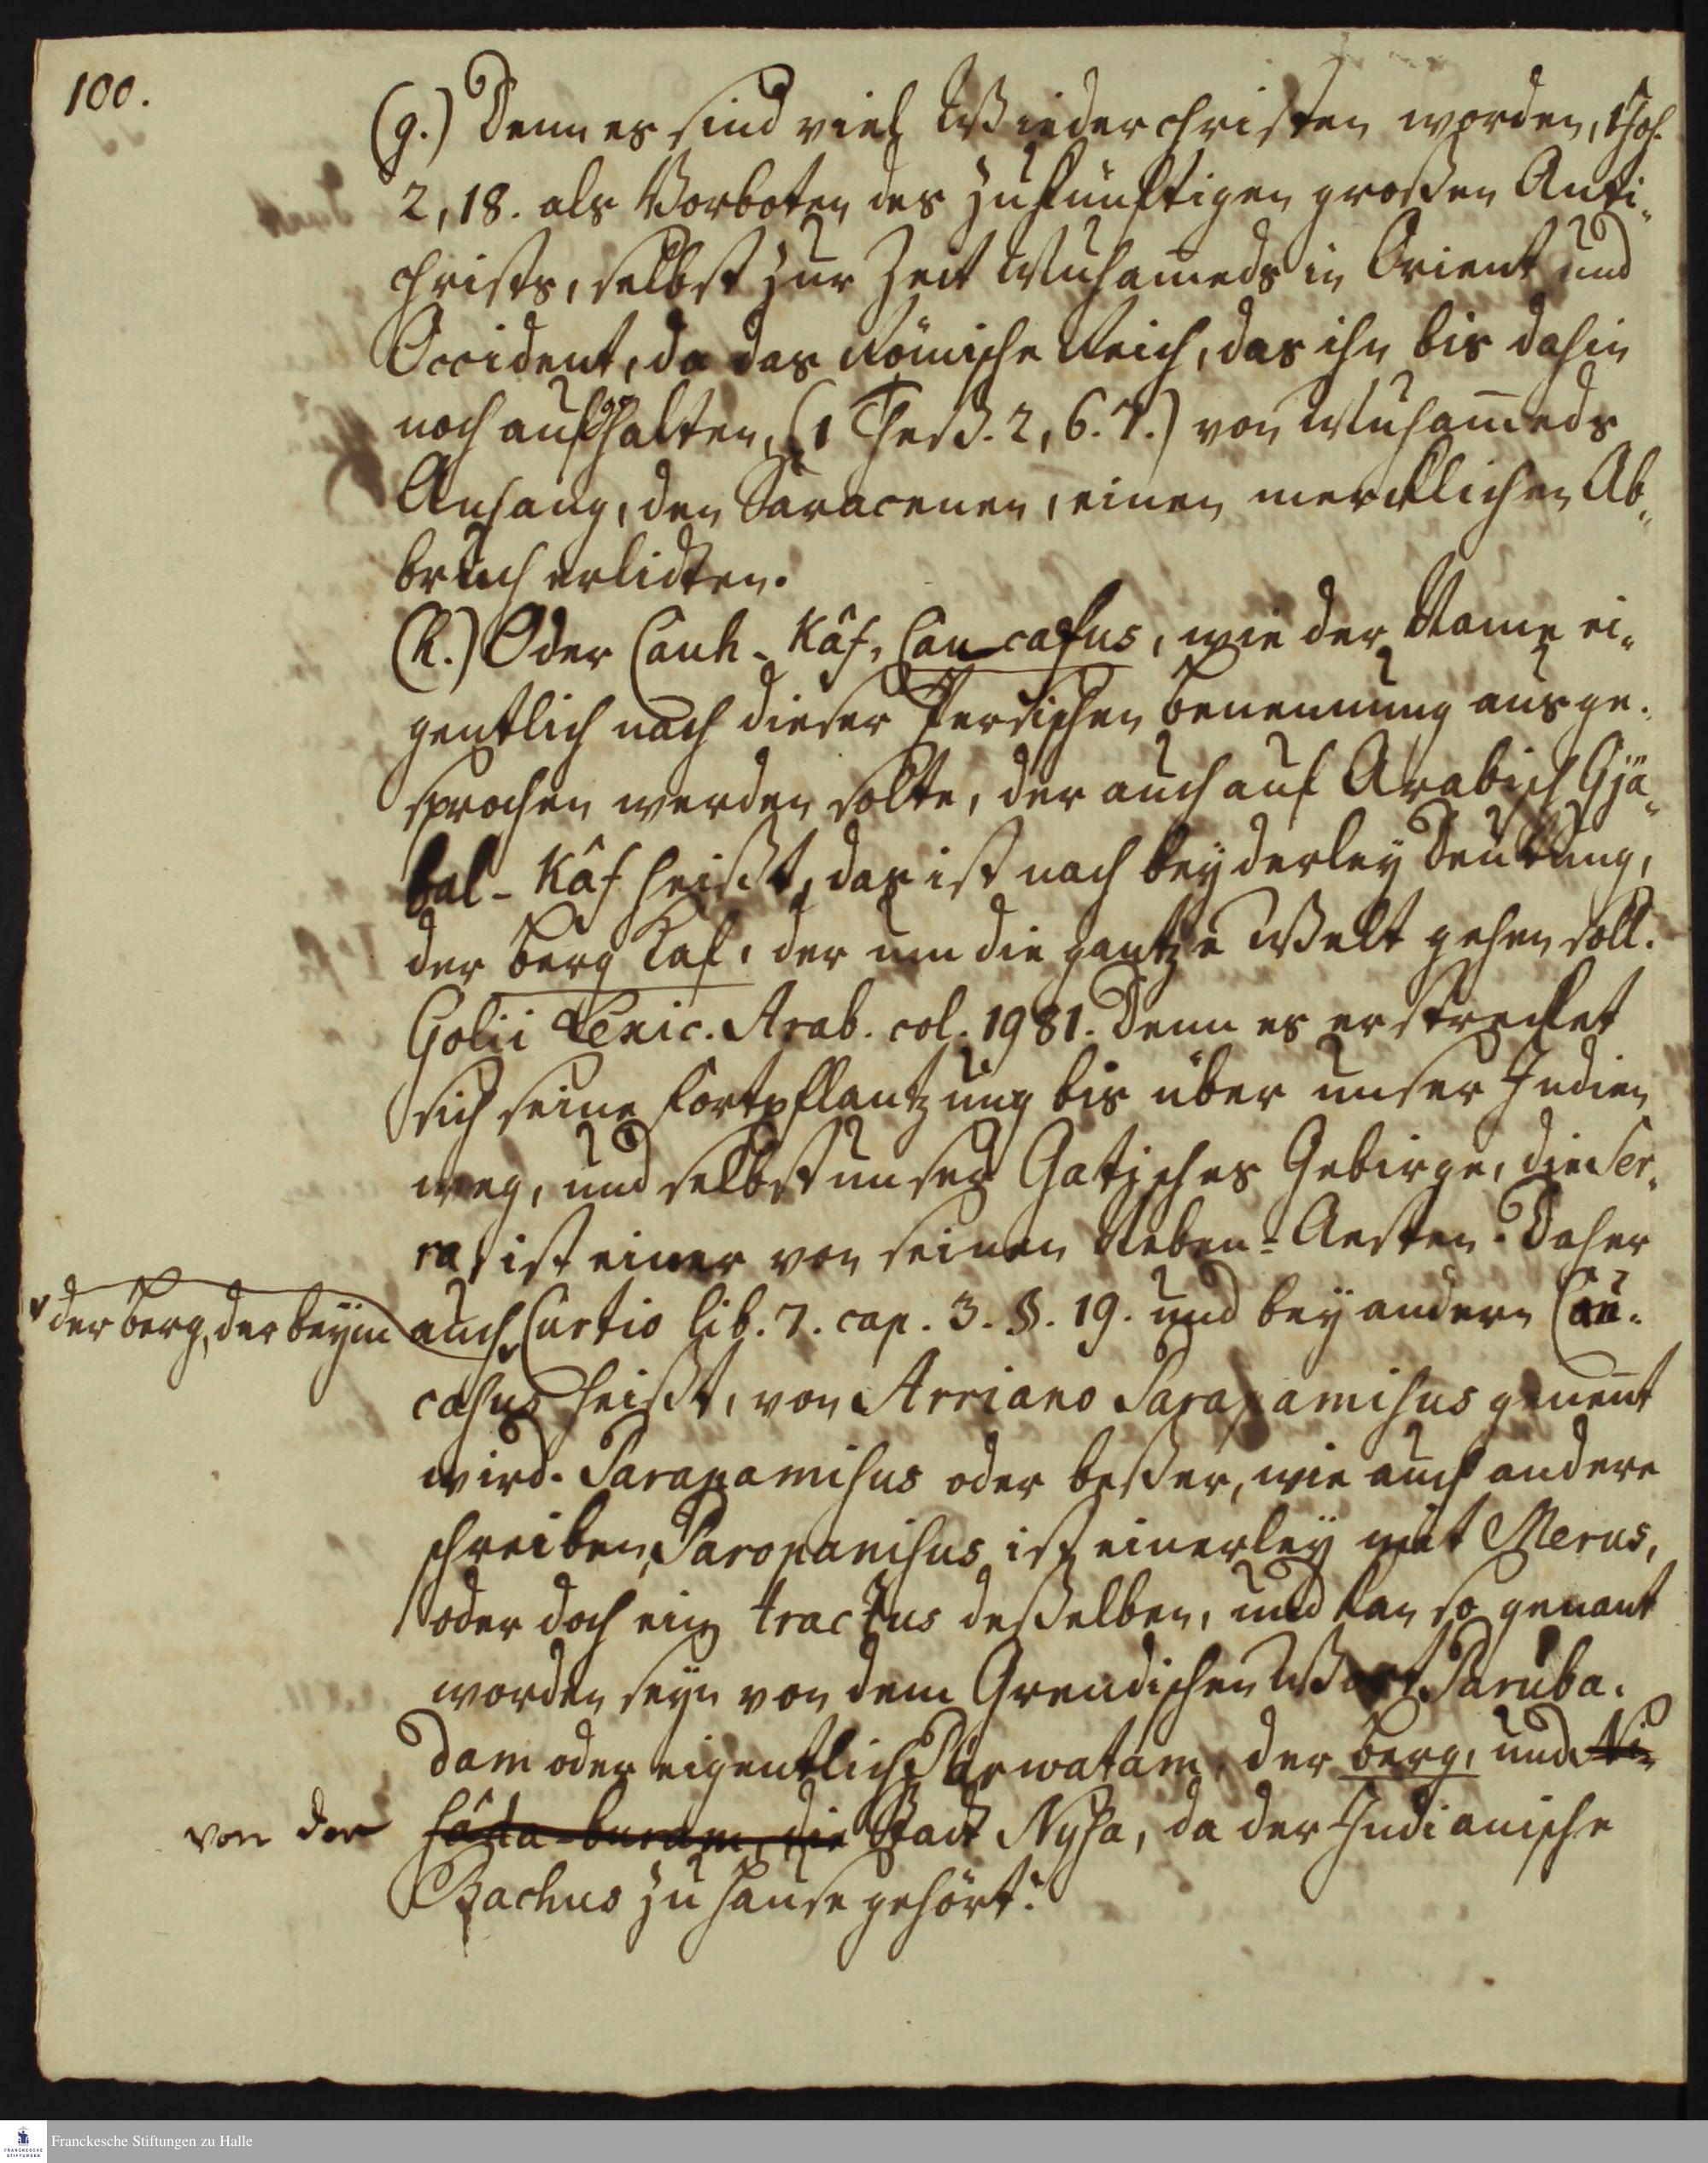 100.
(g.) Denn es sind viel Wiederchristen worden, 1 Joh.
2, 18. als Vorboten des zukünftigen großen Anti-
christs, selbst zur Zeit Muhameds in Orient und
Occident, da das Römische Reich, das ihn bis dahin
noch aufgehalten, (1 Theß. 2, 6. 7.) von Muhameds
Anhang, den Saracenen, einen mercklichen Ab-
bruch erlidten.
(h.) Oder Cauh-Kâf, Caucasus, wie der Name ei-
gentlich nach dieser Persischen Benennung ausge-
sprochen werden solte, der auch auf Arabisch Gjä-
bal-Kâf heißt, das ist nach beyderley Deutung,
der Berg Kaf, der um die gantze Welt gehen soll.
Golii Lexic. Arab. col. 1981. Denn es erstrecket
sich seine Fortpflantzung bis über unser Indien
weg, und selbst unser Gatisches Gebirge, die Ser-
ra, ist einer von seinen Neben-Aesten. Daher
der Berg, der beym auch Curtio lib. 7. cap. 3. §. 19. und bey andern Cau-
casus heißt, von Arriano Parapamisus genent
wird. Parapamisus oder beßer, wie auch andere
schreiben, Paropanisus ist einerley mit Merus,
oder doch ein tractus deßelben, und kan so genant
worden seyn von dem Grendischen Wort Paruba-
dam oder eigentlich Parwatam, der Berg, und Ni-
von der sâda-buram, die Stadt Nysa, da der Indianische
Bachus zu Hause gehört.
Franckesche Stiftungen zu Halle